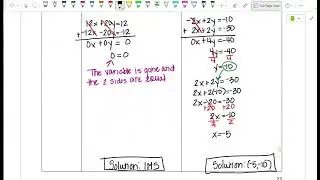 12x+20y=12
+ -12x-20y=-12
0x+0y = 0
0=0
The variable is gone and
the 2 sides are equal
Solution: IMS
-2x+2y=-10
+ 2x+2y=-30
0x+4y=-40
4y=-40
4 4
y=-10
2x+2y=-30
2x+2(-10)=-30
2x-20=-30
+20 +20
2x=-10
2 2
x=-5
Solution: (-5,-10)